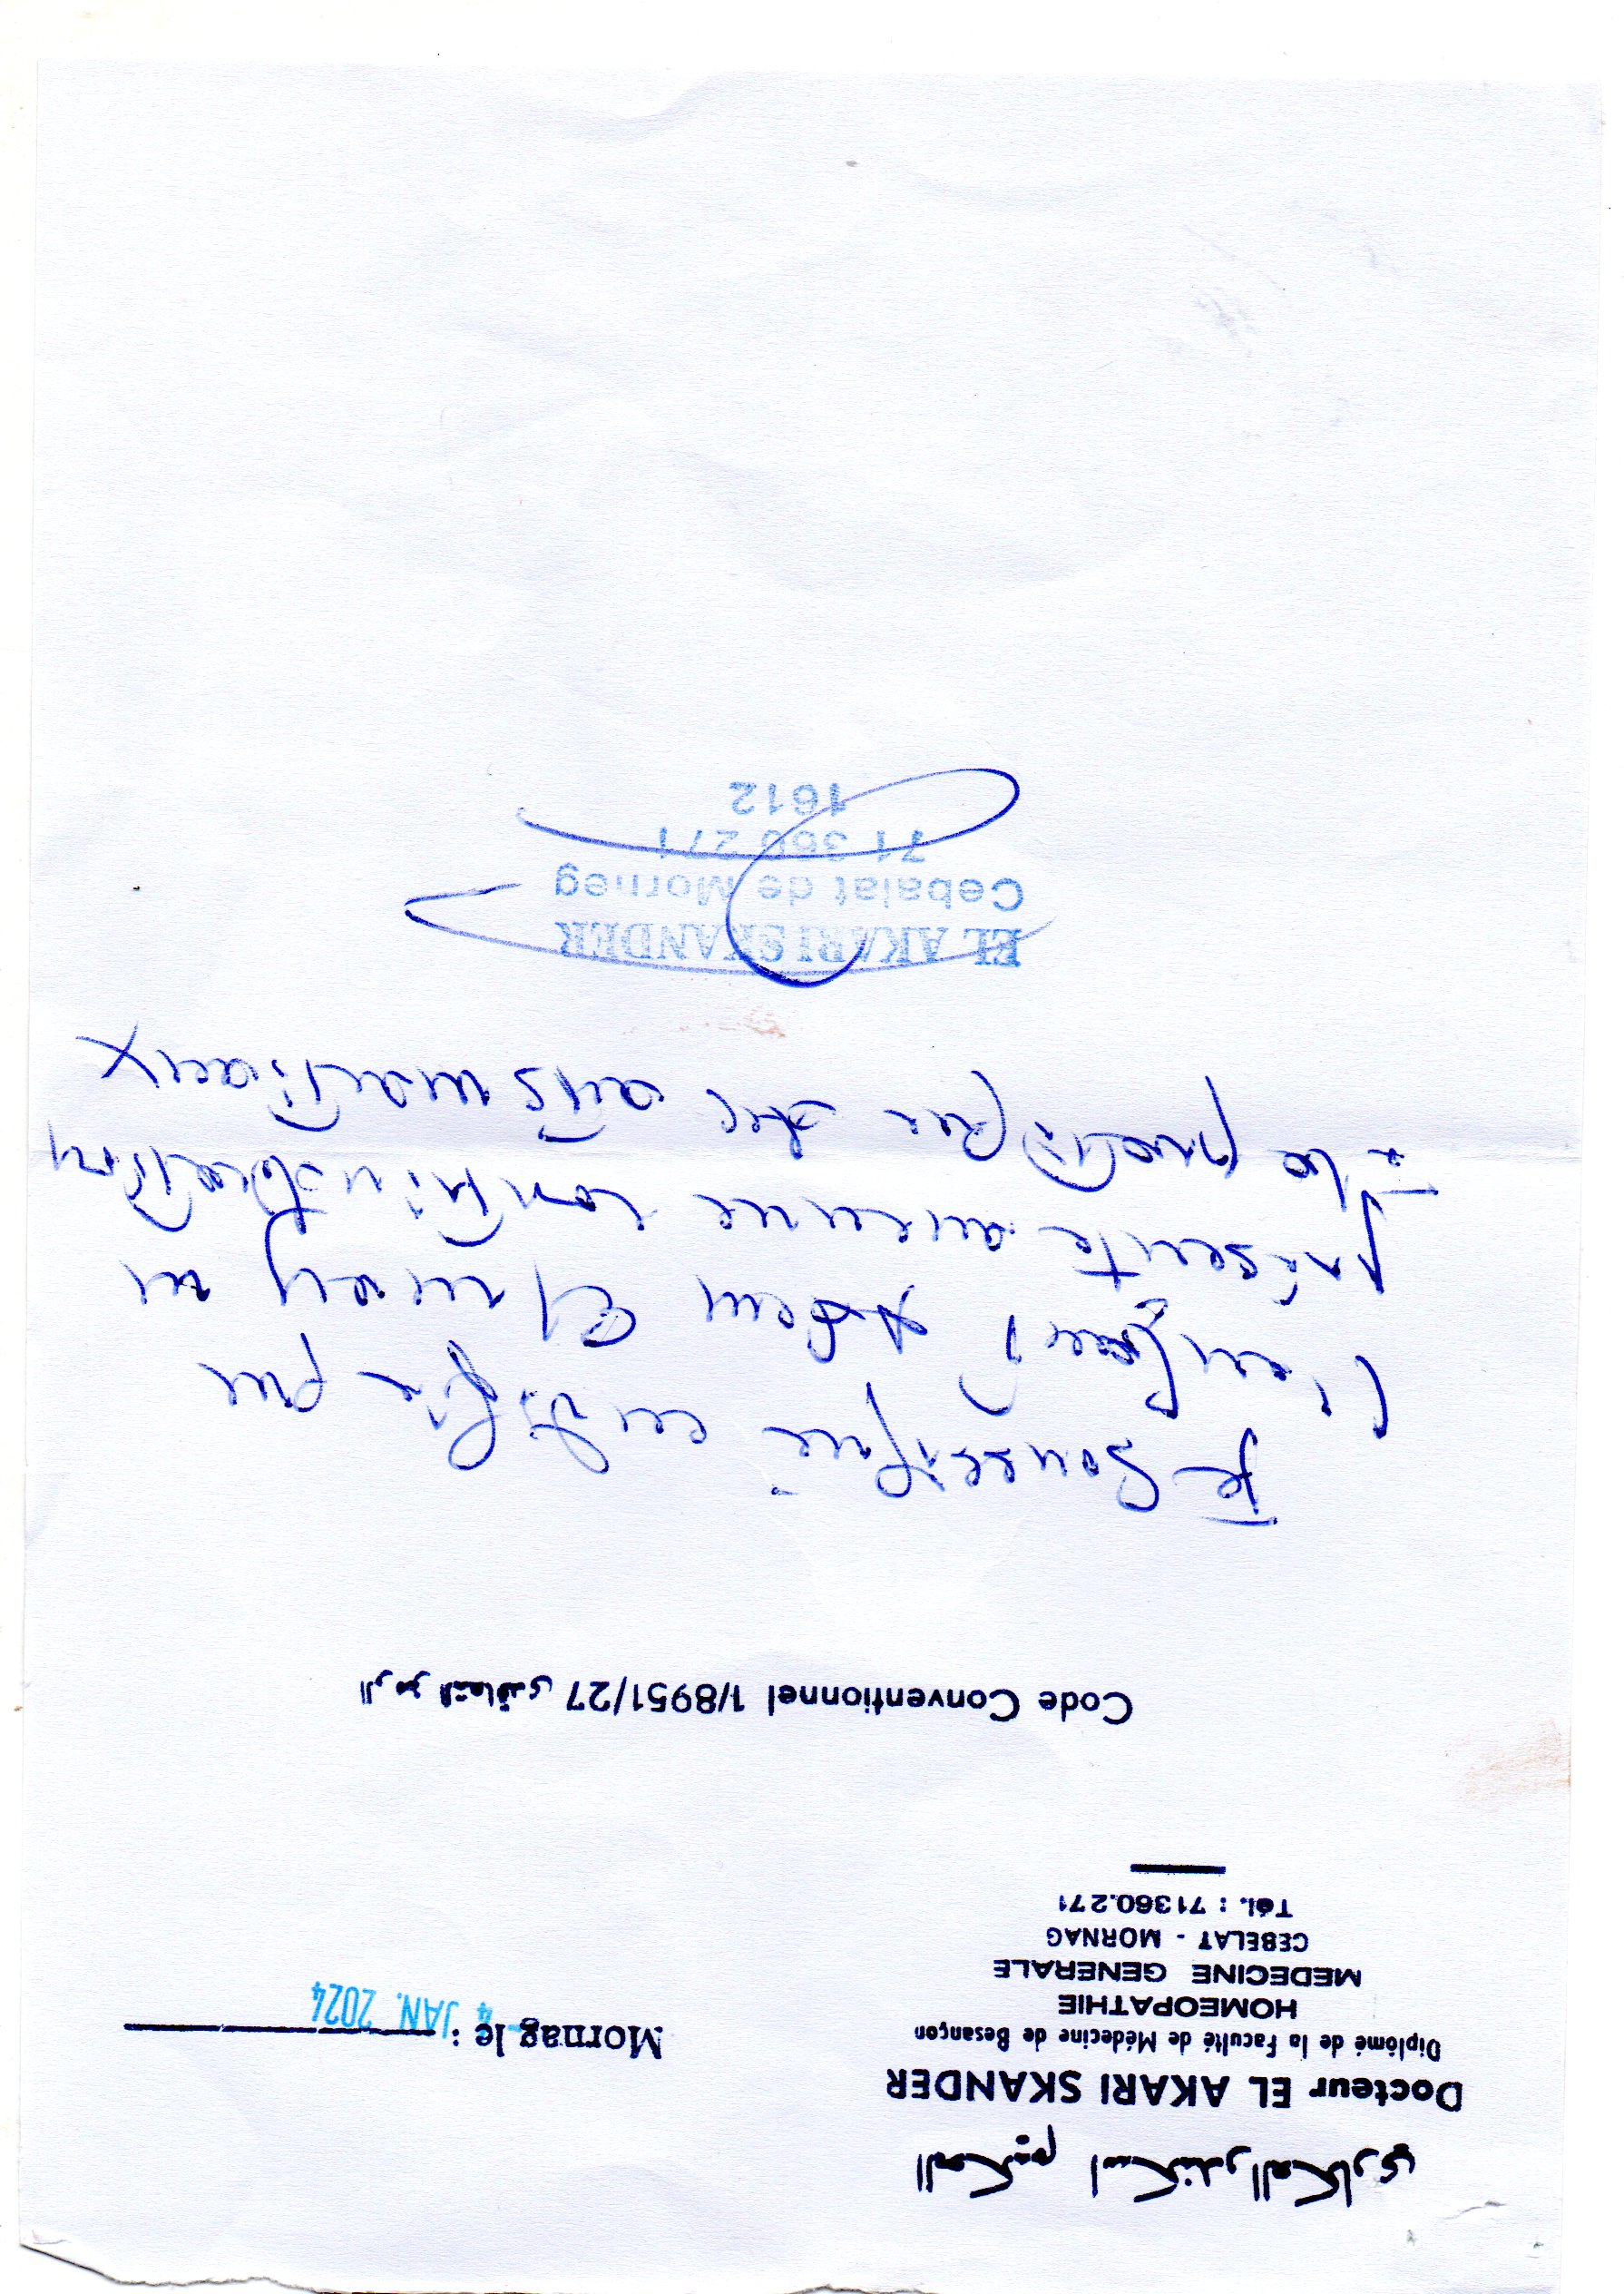 الحكيم اسكندر العكاري
Docteur EL AKARI SKANDER
Diplômé de la Faculté de Médecine de Besançon
HOMEOPATHIE
MEDECINE GENERALE
CEBELAT - MORNAG
Tél. : 71360.271
Mornag le : 4 JAN. 2024
Code Conventionnel 1/8951/27 الرمز التعاقدي
Je soussigné certifie que
l'enfant Adem
présente aucune contre indication
à la pratique des arts martiaux
EL AKARI SKANDER
Cebalat de Morneg
71 360 271
1612